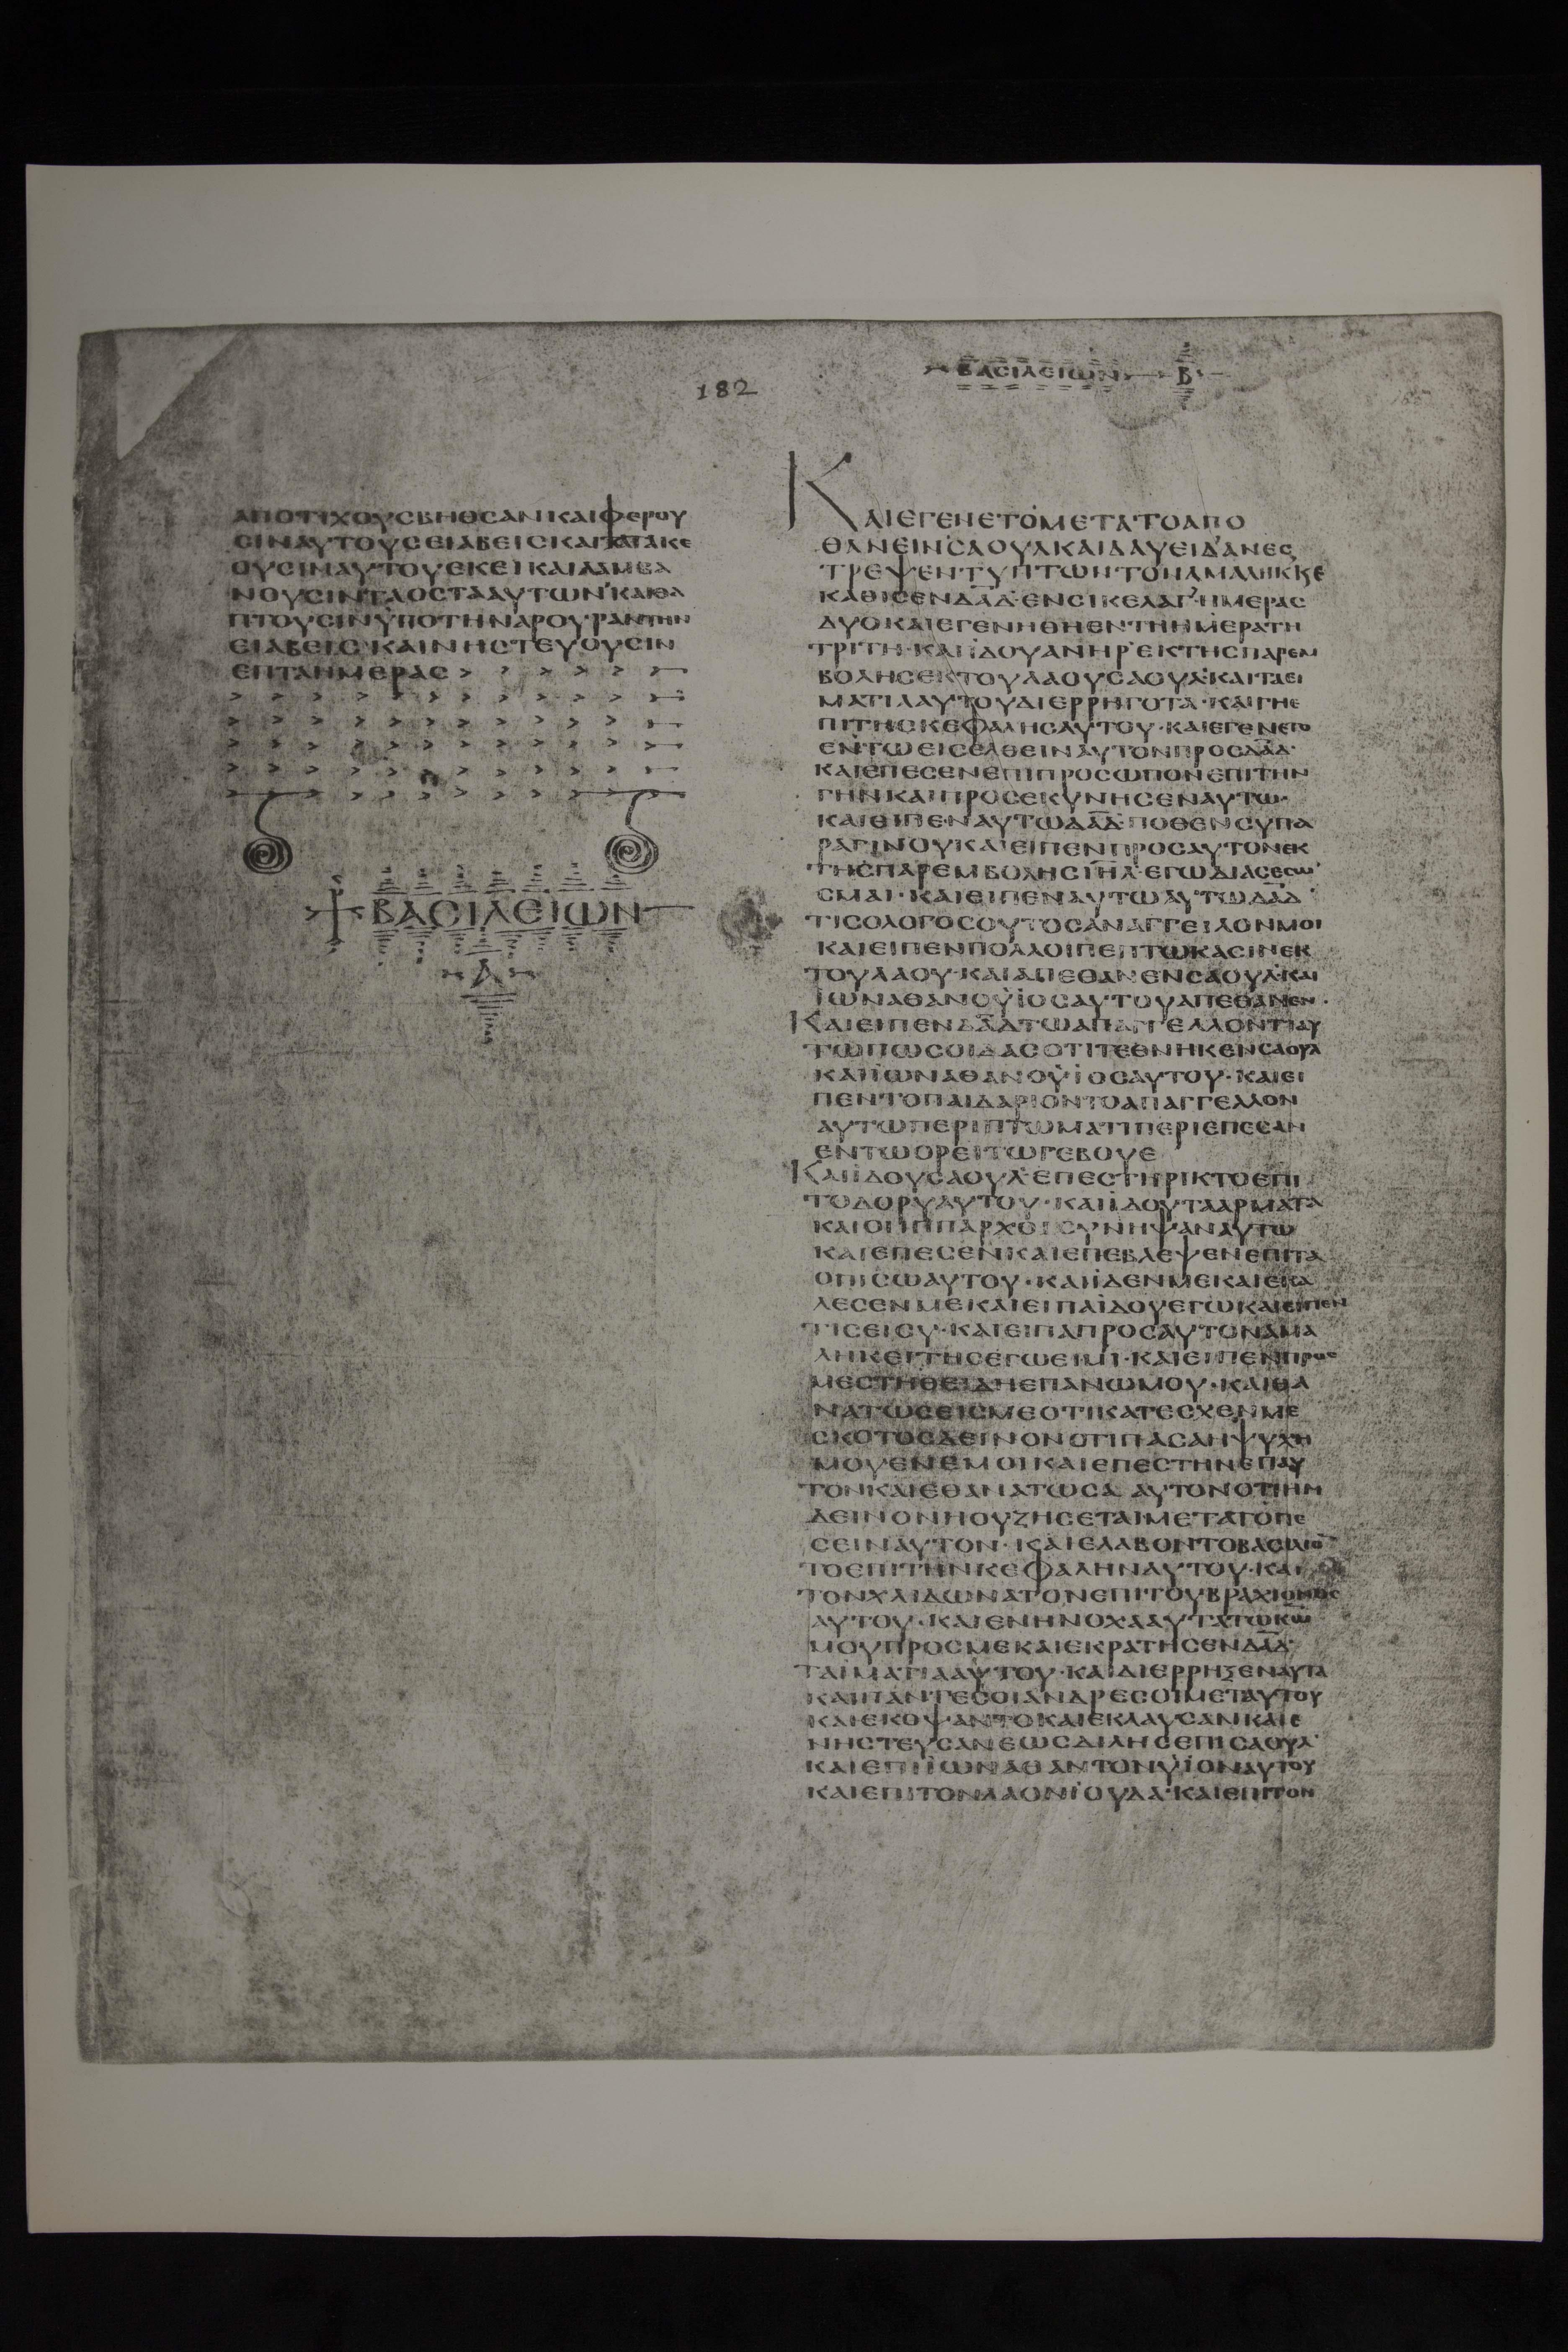 182
ΒΑСΙΛΕΙΩΝ Β
ΑΠΟΤΙΧΟΥСΒΗΘСΑΝΚΑΙΦΕΡΟΥ
СΙΝΑΥΤΟΥСΕΙΑΒΕΙСΚΑΙΚΑΤΑΚΕ
ΟΥСΙΝΑΥΤΟΥСΕΚΕΙΚΑΙΛΑΜΒΑ
ΝΟΥСΙΝΤΑΟСΤΑΑΥΤΩΝΚΑΙΘΑ
ΠΤΟΥСΙΝΫΠΟΤΗΝΑΡΟΥΡΑΝΤΗΝ
ΕΙΑΒΕΙС·ΚΑΙΝΗСΤΕΥΟΥСΙΝ
ΕΠΤΑΗΜΕΡΑС
ΒΑСΙΛΕΙΩΝ
Α
ΚΑΙΕΓΕΝΕΤΟΜΕΤΑΤΟΑΠΟ
ΘΑΝΕΙΝСΑΟΥΛΚΑΙΔΑΥΕΙΔΑΝΕС
ΤΡΕΨΕΝΤΥΠΤΩΝΤΟΝΑΜΑΛΗΚΚΕ
ΚΑΘΙСΕΝΔΑΔ·ΕΝСΙΚΕΛΑΓΗΜΕΡΑС
ΔΥΟΚΑΙΕΓΕΝΗΘΗΕΝΤΗΗΜΕΡΑΤΗ
ΤΡΙΤΗ·ΚΑΙΪΔΟΥΑΝΗΡΕΚΤΗСΠΑΡΕΜ
ΒΟΛΗСΕΚΤΟΥΛΑΟΥСΑΟΥΛ·ΚΑΙΤΑΕΙ
ΜΑΤΙΑΑΥΤΟΥΔΙΕΡΡΗΓΟΤΑ·ΚΑΙΓΗΕ
ΠΙΤΗСΚΕΦΑΛΗСΑΥΤΟΥ·ΚΑΙΕΓΕΝΕΤΟ
ΕΝΤΩΕΙСΕΛΘΕΙΝΑΥΤΟΝΠΡΟСΔΑΔ·
ΚΑΙΕΠΕСΕΝΕΠΙΠΡΟСΩΠΟΝΕΠΙΤΗΝ
ΓΗΝΚΑΙΠΡΟСΕΚΥΝΗСΕΝΑΥΤΩ·
ΚΑΙΕΙΠΕΝΑΥΤΩΔΑΔ·ΠΟΘΕΝСΥΠΑ
ΡΑΓΙΝΟΥΚΑΙΕΙΠΕΝΠΡΟСΑΥΤΟΝΕΚ
ΤΗСΠΑΡΕΜΒΟΛΗСΙΗΛ·ΕΓΩΔΙΑСΕСΩ
СΜΑΙ·ΚΑΙΕΙΠΕΝΑΥΤΩΑΥΤΩΔΑΔ
ΤΙСΟΛΟΓΟСΟΥΤΟСΑΝΑΓΓΕΙΛΟΝΜΟΙ
ΚΑΙΕΙΠΕΝΠΟΛΛΟΙΠΕΠΤΩΚΑСΙΝΕΚ
ΤΟΥΛΑΟΥ·ΚΑΙΑΠΕΘΑΝΕΝСΑΟΥΛ·ΚΑΙ
ΪΩΝΑΘΑΝΟΫΪΟСΑΥΤΟΥΑΠΕΘΑΝΕΝ·
ΚΑΙΕΙΠΕΝΔΑΔΤΩΑΠΑΓΓΕΛΛΟΝΤΙΑΥ
ΤΩΠΩСΟΙΔΑСΟΤΙΤΕΘΝΗΚΕΝСΑΟΥΛ
ΚΑΙΪΩΝΑΘΑΝΟΫΪΟСΑΥΤΟΥ·ΚΑΙΕΙ
ΠΕΝΤΟΠΑΙΔΑΡΙΟΝΤΟΑΠΑΓΓΕΛΛΟΝ
ΑΥΤΩΠΕΡΙΠΤΩΜΑΤΙΠΕΡΙΕΠΕСΑΝ
ΕΝΤΩΟΡΕΙΤΩΓΕΒΟΥΕ
ΚΑΙΪΔΟΥСΑΟΥΛ·ΕΠΕСΤΗΡΙΚΤΟΕΠΙ
ΤΟΔΟΡΥΑΥΤΟΥ·ΚΑΙΪΔΟΥΤΑΑΡΜΑΤΑ
ΚΑΙΟΙΙΠΠΑΡΧΟΙСΥΝΗΨΑΝΑΥΤΩ
ΚΑΙΕΠΕСΕΝΚΑΙΕΠΕΒΛΕΨΕΝΕΠΙΤΑ
ΟΠΙСΩΑΥΤΟΥ·ΚΑΙΪΔΕΝΜΕΚΑΙΕΚΑ
ΛΕСΕΝΜΕΚΑΙΕΙΠΑΪΔΟΥΕΓΩΚΑΙΕΙΠΕΝ
ΤΙСΕΙСΥ·ΚΑΙΕΙΠΑΠΡΟСΑΥΤΟΝΑΜΑ
ΛΗΚΕΙΤΗСΕΓΩΕΙΜΙ·ΚΑΙΕΙΠΕΝΠΡΟС
ΜΕСΤΗΘΕΙΔΗΕΠΑΝΩΜΟΥ·ΚΑΙΘΑ
ΝΑΤΩСΕΙСΜΕΟΤΙΚΑΤΕСΧΕΝΜΕ
СΚΟΤΟСΔΕΙΝΟΝΟΤΙΠΑСΑΗΨΥΧΗ
ΜΟΥΕΝΕΜΟΙΚΑΙΕΠΕСΤΗΝΕΠΑΥ
ΤΟΝΚΑΙΕΘΑΝΑΤΩСΑ ΑΥΤΟΝΟΤΙΗΝ
ΔΕΙΝΟΝΗΟΥΖΗСΕΤΑΙΜΕΤΑΤΟΠΕ
СΕΙΝΑΥΤΟΝ·ΚΑΙΕΛΑΒΟΝΤΟΒΑСΙΛΙΟ
ΤΟΕΠΙΤΗΝΚΕΦΑΛΗΝΑΥΤΟΥ·ΚΑΙ
ΤΟΝΧΛΙΔΩΝΑΤΟΝΕΠΙΤΟΥΒΡΑΧΙΟΝΟС
ΑΥΤΟΥ·ΚΑΙΕΝΗΝΟΧΑΑΥΤΑΤΩΚΩ
ΜΟΥΠΡΟСΜΕΚΑΙΕΚΡΑΤΗСΕΝΔΑΔ·
ΤΑΪΜΑΤΙΑΑΥΤΟΥ·ΚΑΙΔΙΕΡΡΗΞΕΝΑΥΤΑ
ΚΑΙΠΑΝΤΕСΟΙΑΝΔΡΕСΟΙΜΕΤΑΥΤΟΥ
ΚΑΙΕΚΟΨΑΝΤΟΚΑΙΕΚΛΑΥСΑΝΚΑΙΕ
ΝΗСΤΕΥСΑΝΕΩСΔΙΛΗСΕΠΙСΑΟΥΛ·
ΚΑΙΕΠΙΪΩΝΑΘΑΝΤΟΝΫΪΟΝΑΥΤΟΥ
ΚΑΙΕΠΙΤΟΝΛΑΟΝΪΟΥΔΑ·ΚΑΙΕΠΙΤΟΝ